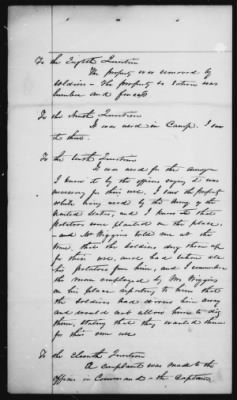 To the Eighth Question
The property was removed by
soldiers – The property so taken was
lumber and fences
To the Ninth Question
It was used in Camp. I saw
it there.
To the tenth Question
It was used for the army
I know it by the officers saying it was
necessary for their use, I saw the property
while being used by the Army of the
United States, and I know also that
potatoes were planted on the place,
and Mr Wiggins told me at the
time, that the soldiers dug them up
for their use, and had taken all
his potatoes from him, and I remember
the man employed by Mr Wiggins
on his place reporting to him that
the soldiers had driven him away
and would not allow him to dig
them, stating that they wanted them
for their own use
To the Eleventh Question
A complaint was made to the
officer in Command – the Captain